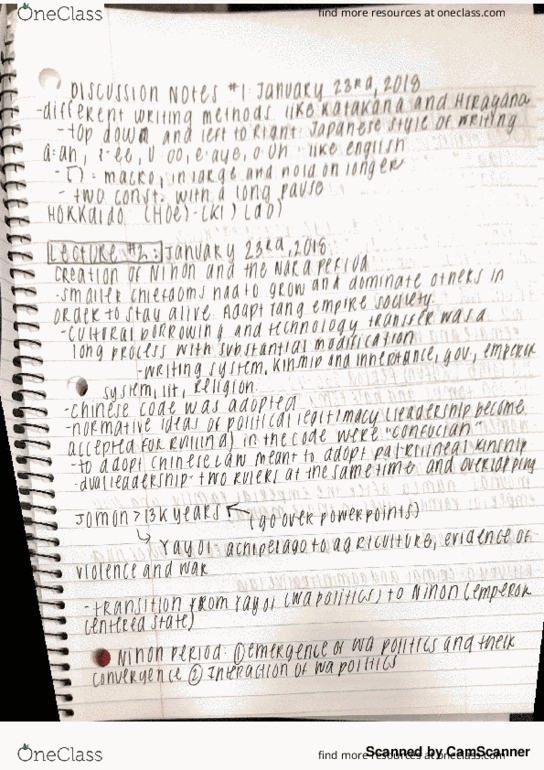 OneClass
find more resources at oneclass.com
DISCUSSION NOTES #1: January 23rd, 2018
-different writing methods like Katakana and Hiragana
-top down and left to right: Japanese style of writing
a:ah, i-ee, u oo, e-aye, o-oh - like english
macro, in large and hold on longer
- two const. with a long pause
HOKKAIDO (HOE)-(KI) (DO)
Lecture #2: January 23rd, 2018
creation of Nihon and the Nara Period
-smaller chiefdoms had to grow and dominate others in
order to stay alive. Adapt tang empire society
-cultural borrowing and technology transfer was a
long process with substantial modification
-writing system, kinship and inheritance, gov, emperor
system, lit, religion
-chinese code was adopted
-normative ideas of political legitimacy (leadership become
accepted for ruling) in the code were "confucian"
-to adopt chinese law meant to adopt patrilineal kinship
-dual leadership- two rulers at the same time and overlapping
Jomon > 13K years (go over powerpoints)
Yayoi achipelago to agriculture, evidence of
violence and war
-transition from Yayoi (wa politics) to Nihon (emperor
centered state)
Nihon Period: ① emergence of wa politics and their
convergence ② Interaction of wa politics
OneClass
find more resources at oneclass.com
Scanned by CamScanner